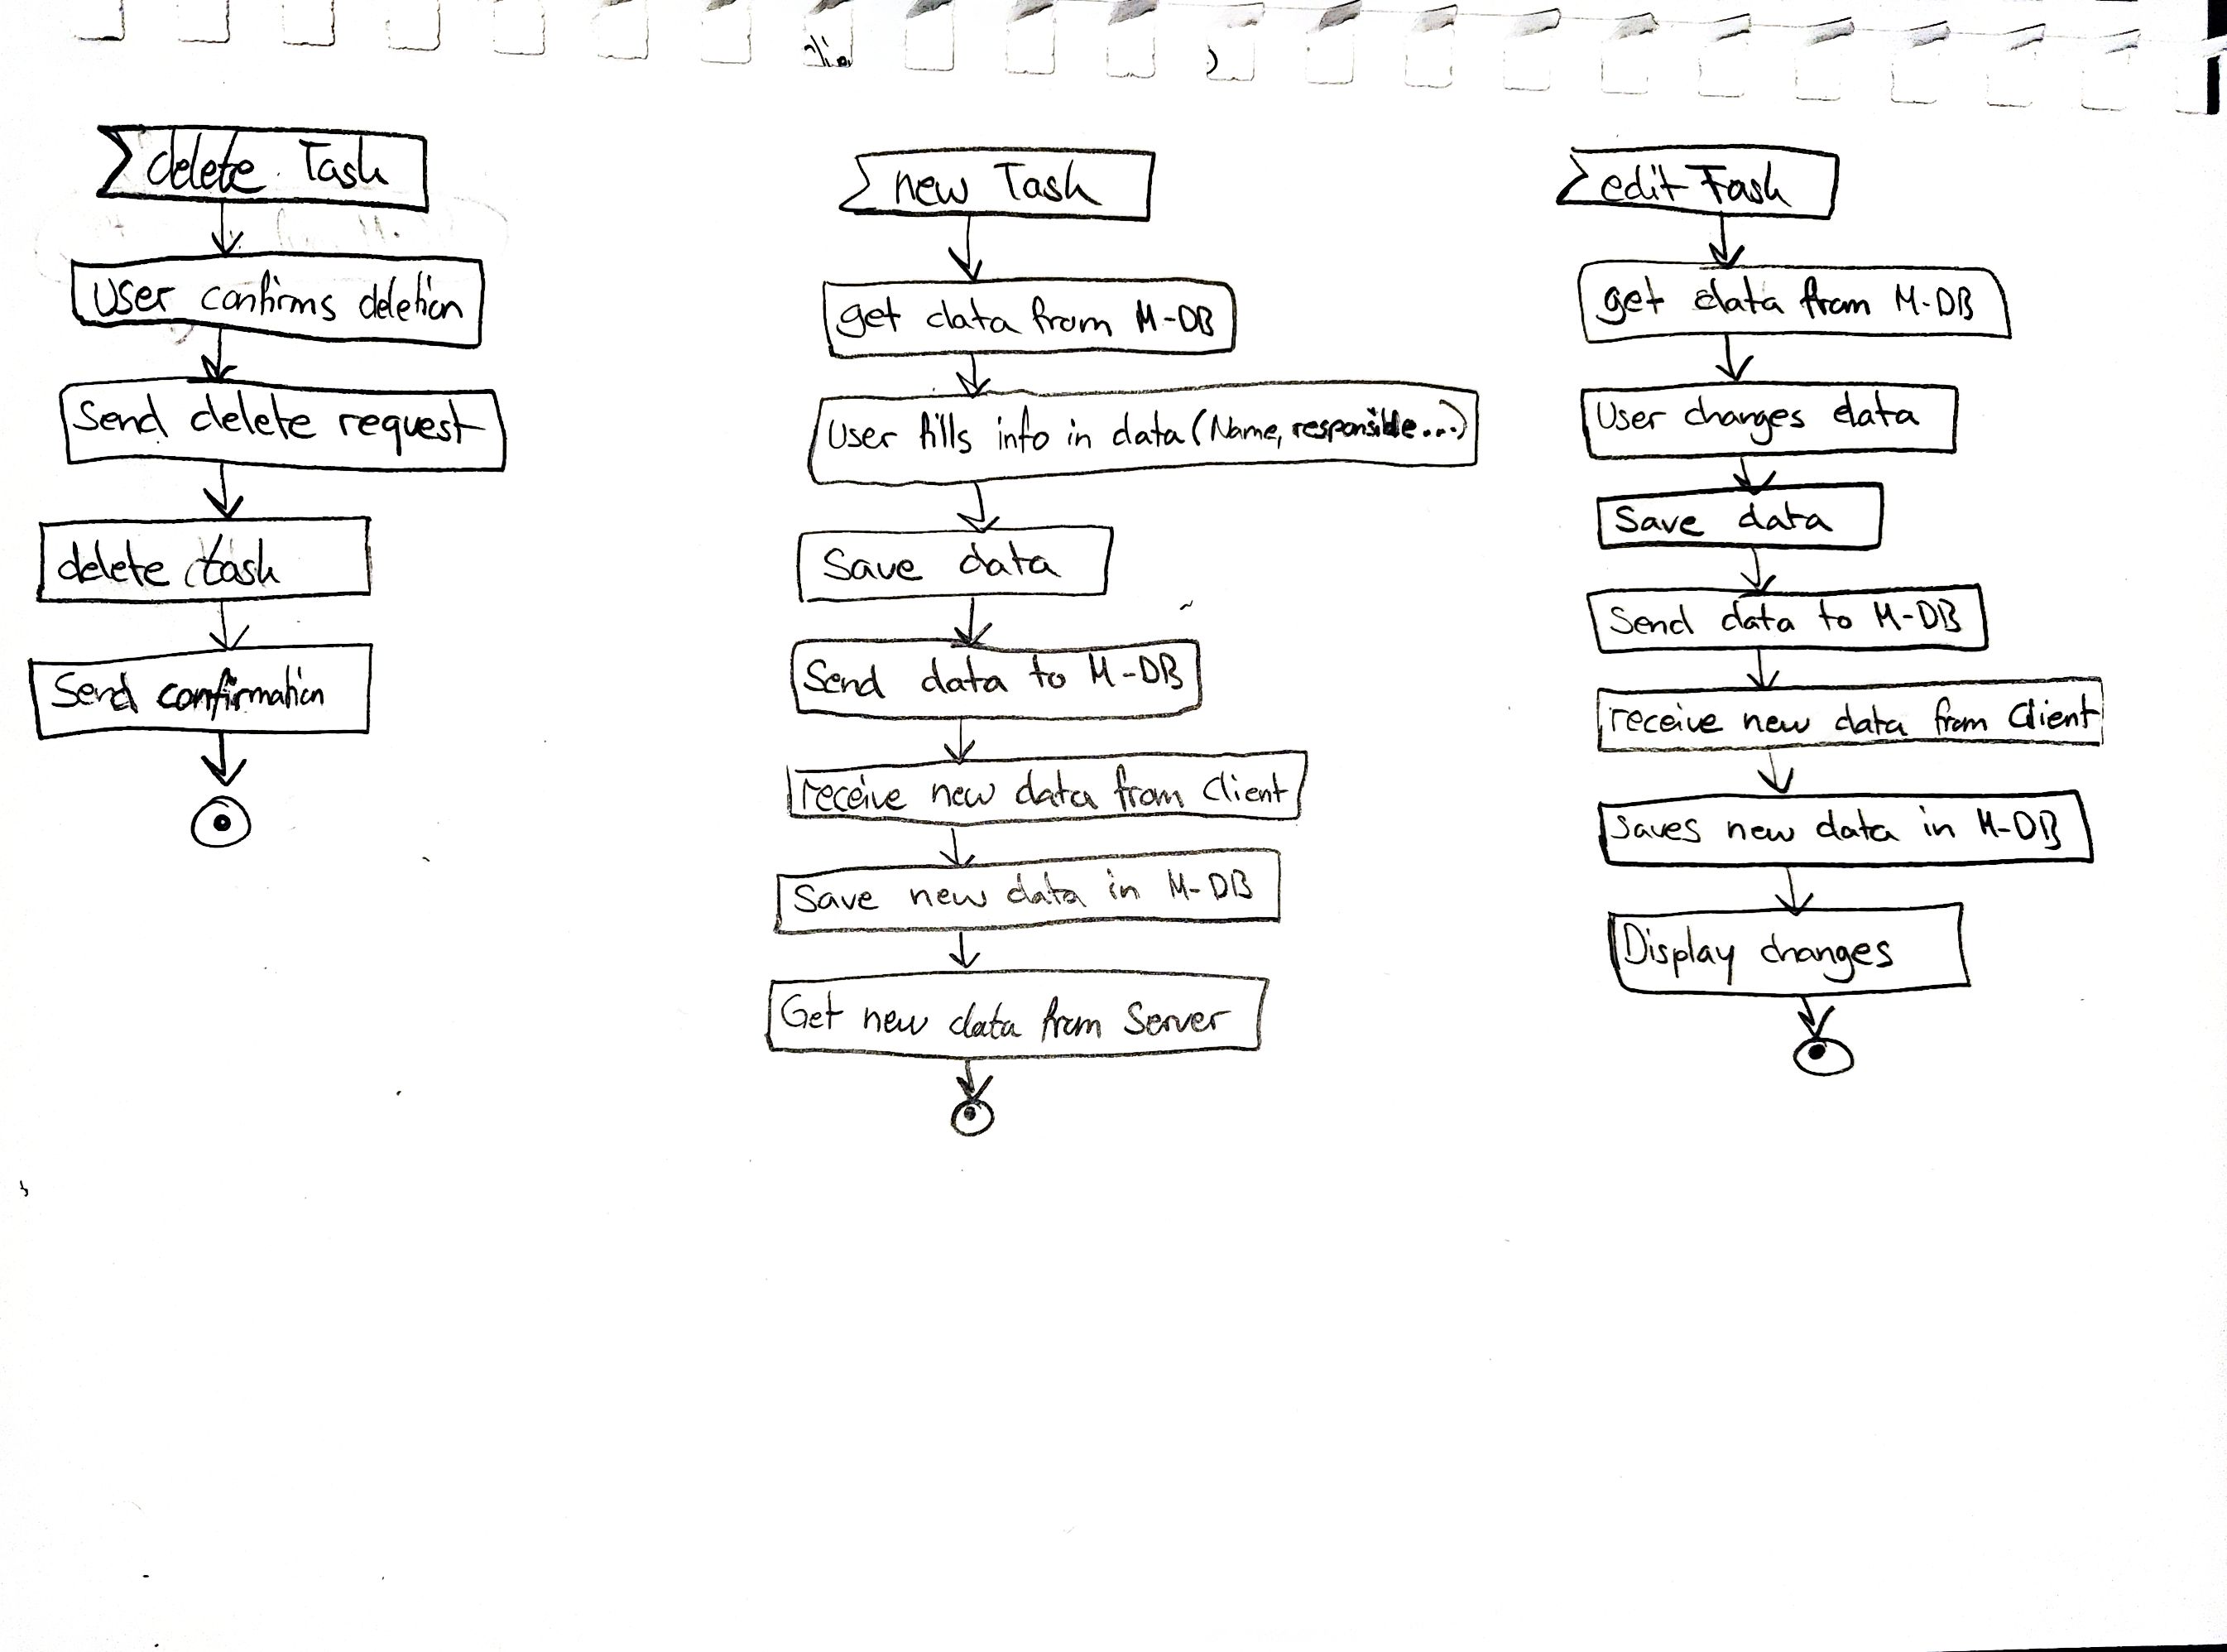 delete Task
User confirms deletion
Send delete request
delete task
Send confirmation
new Task
get data from M-DB
User fills info in data (Name, responsible...)
Save data
Send data to M-DB
receive new data from Client
Save new data in M-DB
Get new data from Server
edit Task
get data from M-DB
User changes data
Save data
Send data to M-DB
receive new data from Client
saves new data in M-DB
Display changes